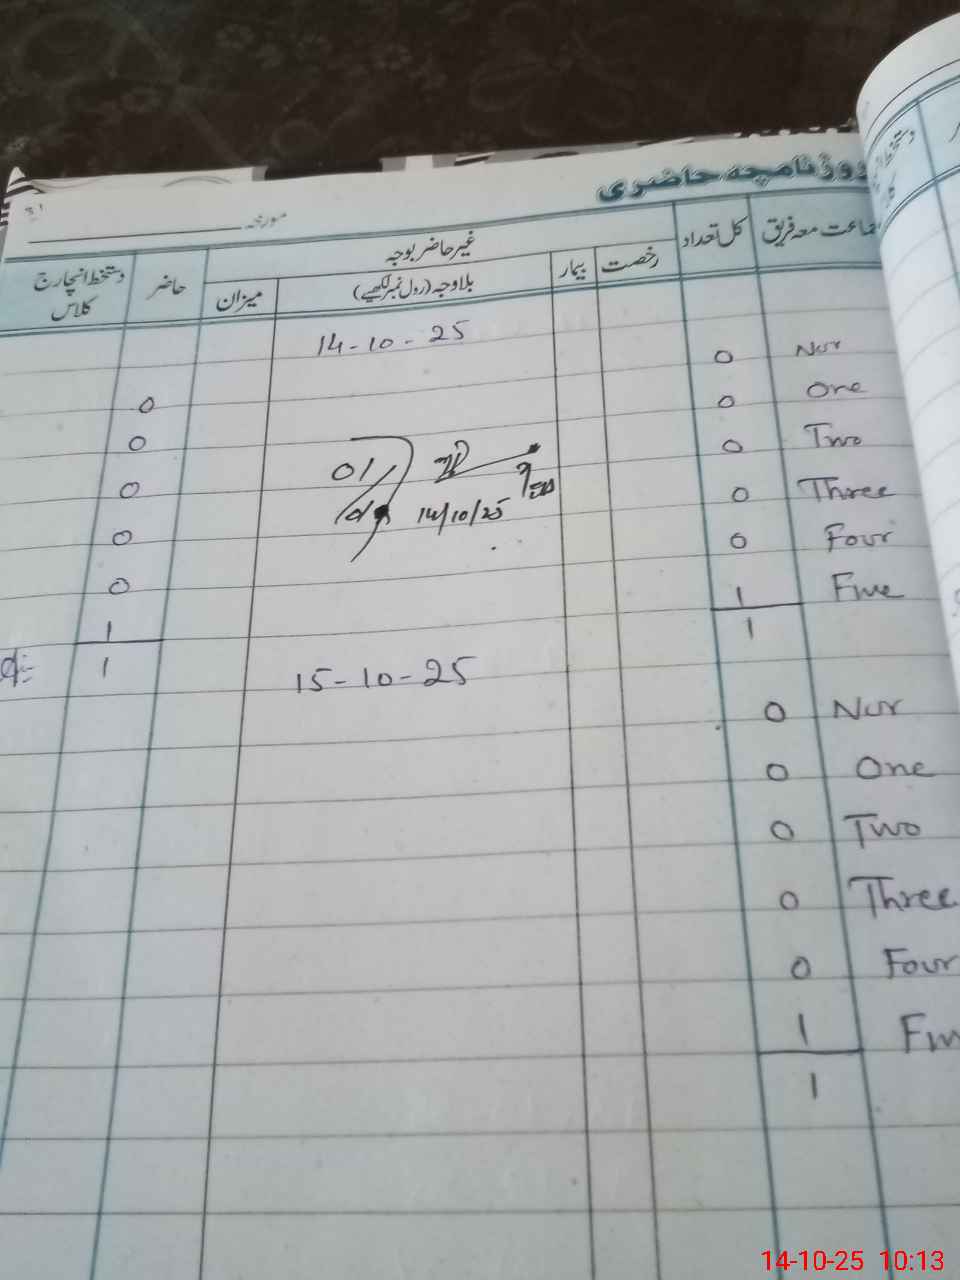 روزنامچہ حاضری
مورخہ
جماعت معہ فریق کل تعداد غیر حاضر بوجہ حاضر دستخط انچارج کلاس
رخصت بیمار بلاوجہ (رول نمبر لکھیے) میزان
14-10-25
Nur 0 0
One 0 0
Two 0 0
Three 0 0
Four 0 0
Five 1 1
1 1
01
14/10/25
15-10-25
Nur 0
One 0
Two 0
Three 0
Four 0
Fiv 1
1
14-10-25 10:13